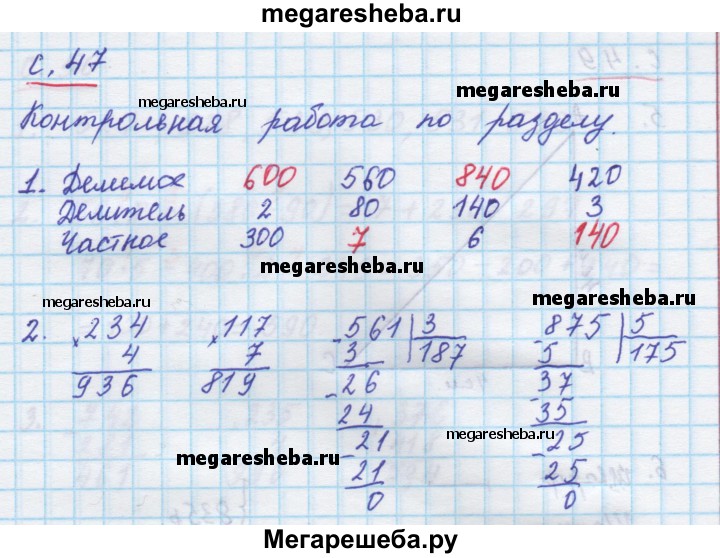 megaresheba.ru
с. 47
megaresheba.ru
megaresheba.ru
Контрольная работа по разделу.
1. Делимое 600 560 840 420
Делитель 2 80 140 3
Частное 300 7 6 140
megaresheba.ru
megaresheba.ru
megaresheba.ru
2. ×234 ×117 -561 |3 -875 |5
4 7 3 187 5 175
936 819 -26 -37
24 35
megaresheba.ru
-21 -25
megaresheba.ru
21 25
0 0
Мегарешеба.ру